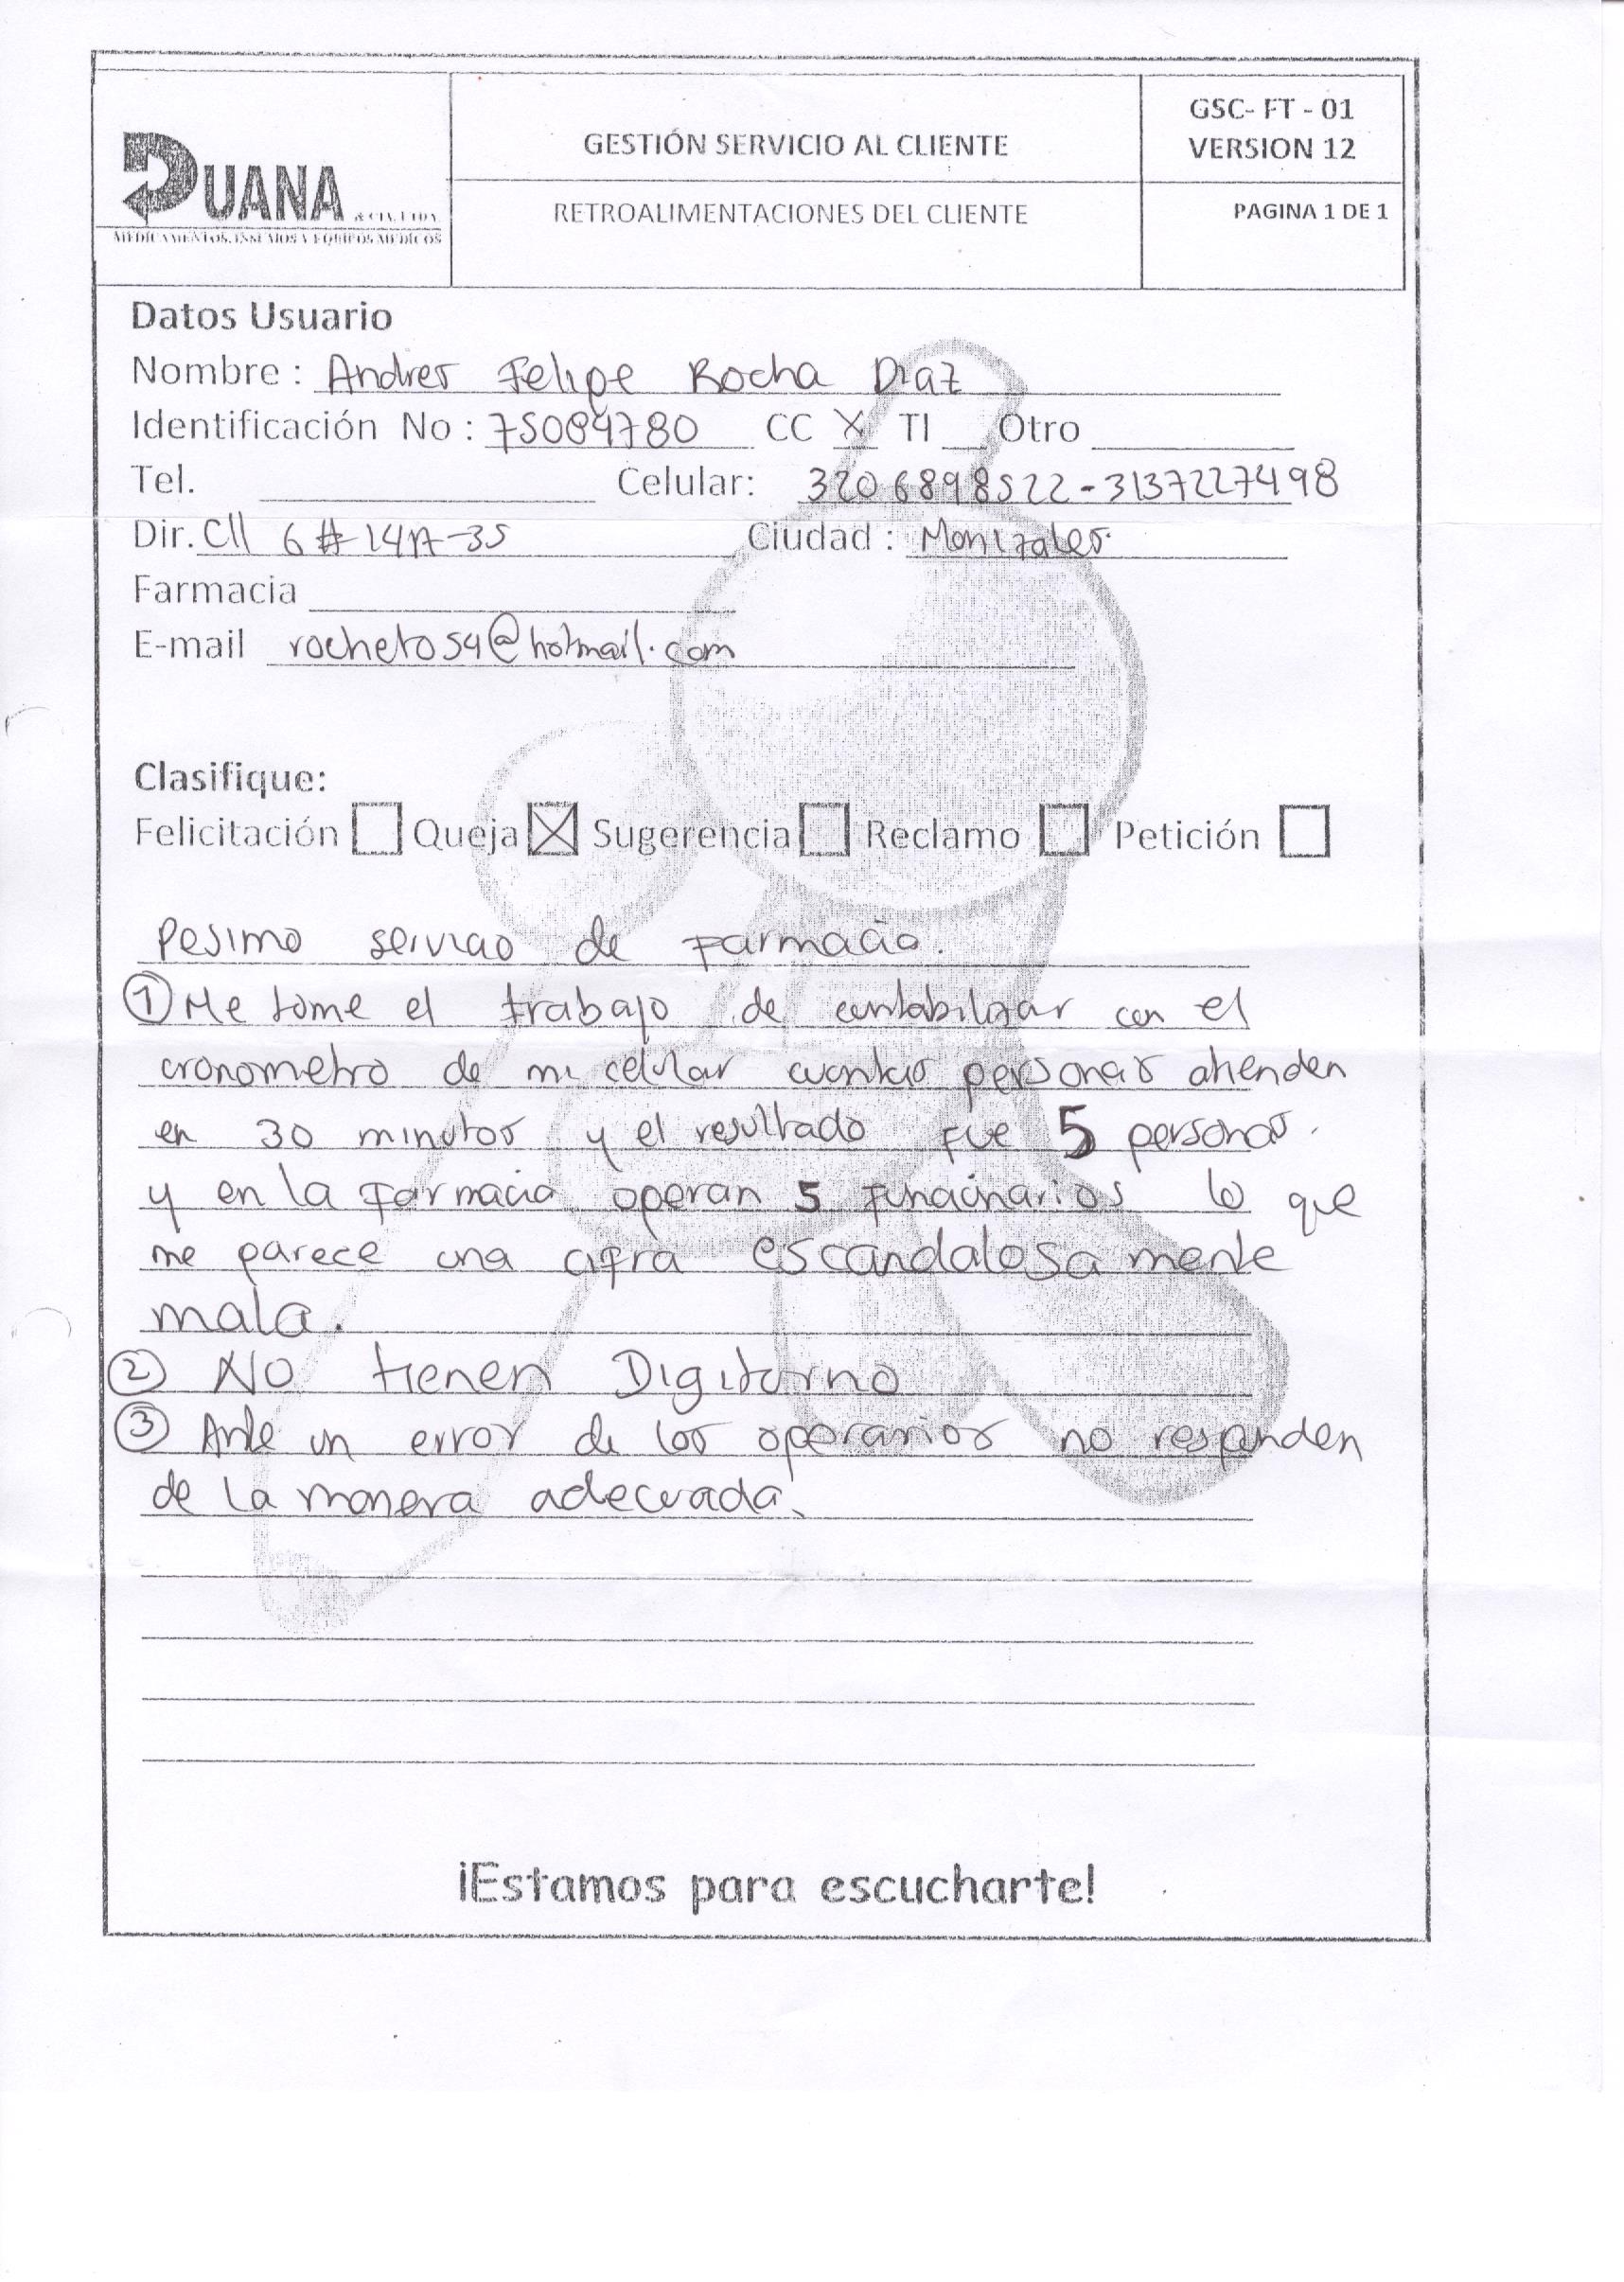 DUANA & CIA. LTDA.
MEDICAMENTOS, INSUMOS Y EQUIPOS MEDICOS
GESTIÓN SERVICIO AL CLIENTE
RETROALIMENTACIONES DEL CLIENTE
GSC- FT - 01
VERSION 12
PAGINA 1 DE 1
Datos Usuario
Nombre : Andres Felipe Rocha Diaz
Identificación No : 75089780 CC X TI Otro
Tel. Celular: 3206898522-3137227498
Dir. Cll 6 # 14A-35 Ciudad : Manizales.
Farmacia
E-mail rocheto59@hotmail.com
Clasifique:
Felicitación Queja X Sugerencia Reclamo Petición
Pesimo servicio de Farmacia.
1 Me tome el trabajo de contabilizar con el
cronometro de mi celular cuantas personas atienden
en 30 minutos y el resultado fue 5 personas.
y en la farmacia operan 5 funcionarios lo que
me parece una cifra escandalosamente
mala.
2 NO tienen Digiturno
3 Ante un error de los operarios no responden
de la manera adecuada.
¡Estamos para escucharte!